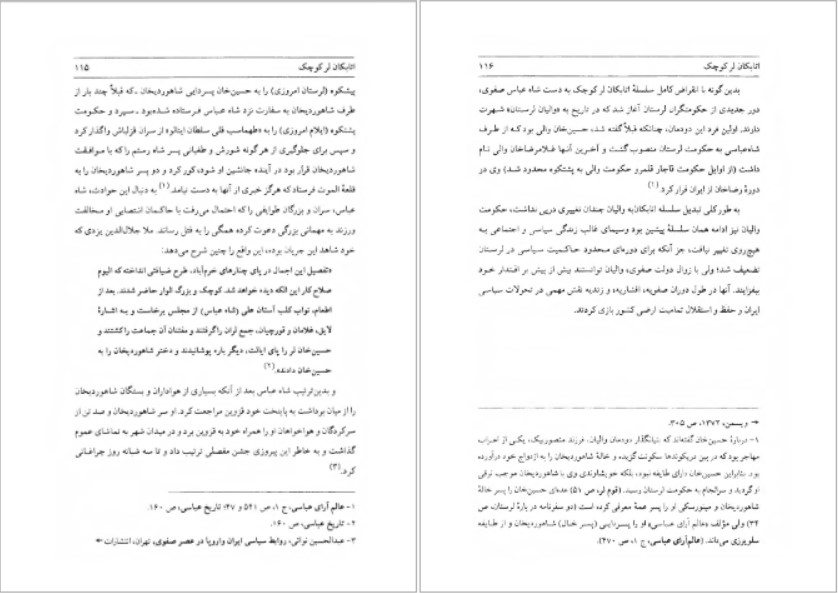 اتابکان لر کوچک ۱۱۵
پیشکوه (لرستان امروزی) را به حسین‌خان پسردایی شاهوردیخان ـ که قبلاً چند بار از
طرف شاهوردیخان به سفارت نزد شاه عباس فرستاده شده‌بود ـ سپرد و حکومت
پشتکوه (ایلام امروزی) را به «طهماسب قلی سلطان اینالو» از سران قزلباش واگذار کرد
و سپس برای جلوگیری از هر گونه شورش و طغیانی پسر شاه رستم را که با موافقت
شاهوردیخان قرار بود در آینده جانشین او شود، کور کرد و دو پسر شاهوردیخان را به
قلعهٔ الموت فرستاد که هرگز خبری از آنها به دست نیامد.(۱) به دنبال این حوادث، شاه
عباس، سران و بزرگان طوایفی را که احتمال می‌رفت با حاکمان انتصابی او مخالفت
ورزند به مهمانی بزرگی دعوت کرده همگی را به قتل رساند. ملا جلال‌الدین یزدی که
خود شاهد این جریان بوده، این واقع را چنین شرح می‌دهد:
«تفصیل این اجمال در پای چنارهای خرم‌آباد، طرح ضیافتی انداخته که الیوم
صلاح کار این الکه دیده خواهد شد. کوچک و بزرگ الوار حاضر شدند. بعد از
اطعام، نواب کلب آستان علی (شاه عباس) از مجلس برخاست و به اشارهٔ
لایق، غلامان و قورچیان، جمع لران را گرفتند و مفتنان آن جماعت را کشتند و
حسین‌خان لر را پای ایالت، دیگر باره پوشانیدند و دختر شاهوردیخان را به
حسین‌خان دادند».(۲)
و بدین‌ترتیب شاه عباس بعد از آنکه بسیاری از هواداران و بستگان شاهوردیخان
را از میان برداشت به پایتخت خود قزوین مراجعت کرد. او سر شاهوردیخان و صد تن از
سرکردگان و هواخواهان او را همراه خود به قزوین برد و در میدان شهر به تماشای عموم
گذاشت و به خاطر این پیروزی جشن مفصلی ترتیب داد و تا سه شبانه روز چراغانی
کرد.(۳)
۱- عالم آرای عباسی، ج ۱، ص ۵۴۱ و ۴۷؛ تاریخ عباسی، ص ۱۶۰.
۲- تاریخ عباسی، ص ۱۶۰.
۳- عبدالحسین نوائی، روابط سیاسی ایران و اروپا در عصر صفوی، تهران، انتشارات
اتابکان لر کوچک ۱۱۶
بدین گونه با انقراض کامل سلسلهٔ اتابکان لر کوچک به دست شاه عباس صفوی،
دور جدیدی از حکومتگران لرستان آغاز شد که در تاریخ به «والیان لرستان» شهرت
دارند. اولین فرد این دودمان، چنانکه قبلاً گفته شد، حسین‌خان والی بود که از طرف
شاه‌عباسی به حکومت لرستان منصوب گشت و آخرین آنها غلامرضاخان والی نام
داشت (از اوایل حکومت قاجار قلمرو حکومت والی به پشتکوه محدود شد) وی در
دورهٔ رضاخان از ایران فرار کرد.(۱)
به طور کلی تبدیل سلسله اتابکان‌به والیان چندان تغییری درپی نداشت، حکومت
والیان نیز ادامه همان سلسلهٔ پیشین بود وسیمای غالب زندگی سیاسی و اجتماعی به
هیچ‌روی تغییر نیافت، جز آنکه برای دوره‌ای محدود حاکمیت سیاسی در لرستان
تضعیف شد؛ ولی با زوال دولت صفوی، والیان توانستند بیش از پیش بر اقتدار خود
بیفزایند. آنها در طول دوران صفویه، افشاریه، و زندیه نقش مهمی در تحولات سیاسی
ایران و حفظ و استقلال تمامیت ارضی کشور بازی کردند.
ویسمن، ۱۳۷۲، ص ۳۰۵.
۱- دربارهٔ حسین‌خان گفته‌اند که بنیانگذار دودمان والیان، فرزند منصوربیک، یکی از اعراب
مهاجر بود که در بین دریکوندها سکونت گزیده و خالهٔ شاهوردیخان را به ازدواج خود درآورده
بود. بنابراین حسین‌خان دارای طایفه نبود، بلکه خویشاوندی وی با شاهوردیخان موجب ترقی
او گردید و سرانجام به حکومت لرستان رسید. (قوم لر، ص ۵۱) عده‌ای حسین‌خان را پسر خالهٔ
شاهوردیخان و مینورسکی او را پسر عمهٔ معرفی کرده است (دو سفرنامه دربارهٔ لرستان، ص
۳۴) ولی مؤلف «عالم آرای عباسی» او را پسردایی (پسر خال) شاهوردیخان و از طایفه
سلویزری می‌داند. (عالم‌آرای عباسی، ج ۱، ص ۴۷۰).